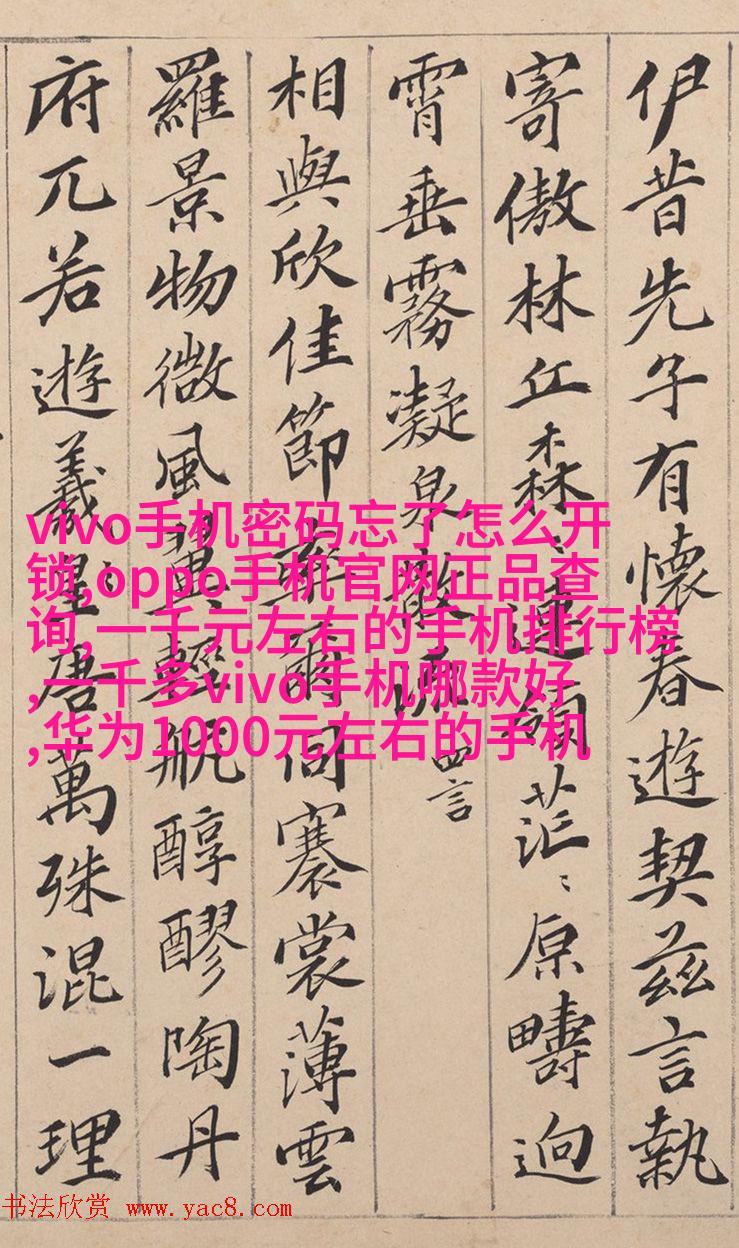 伊昔先子有懷春遊契茲言執
寄傲林丘森〻連嶺茫〻原疇逈
霄垂霧凝泉散流四言
相與欣佳節率爾同褰裳薄雲
羅景物微風翼輕航醇醪陶丹
府兀若遊羲唐萬殊混一理
vivo手机密码忘了怎么开
锁,oppo手机官网正品查
询,一千元左右的手机排行榜
,一千多vivo手机哪款好
,华为1000元左右的手机
书法欣赏 www.yac8.com